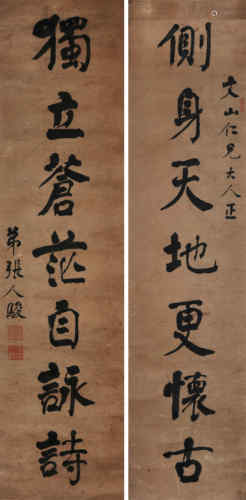 文山仁兄大人正
側身天地更懷古
獨立蒼茫自詠詩
弟張人駿